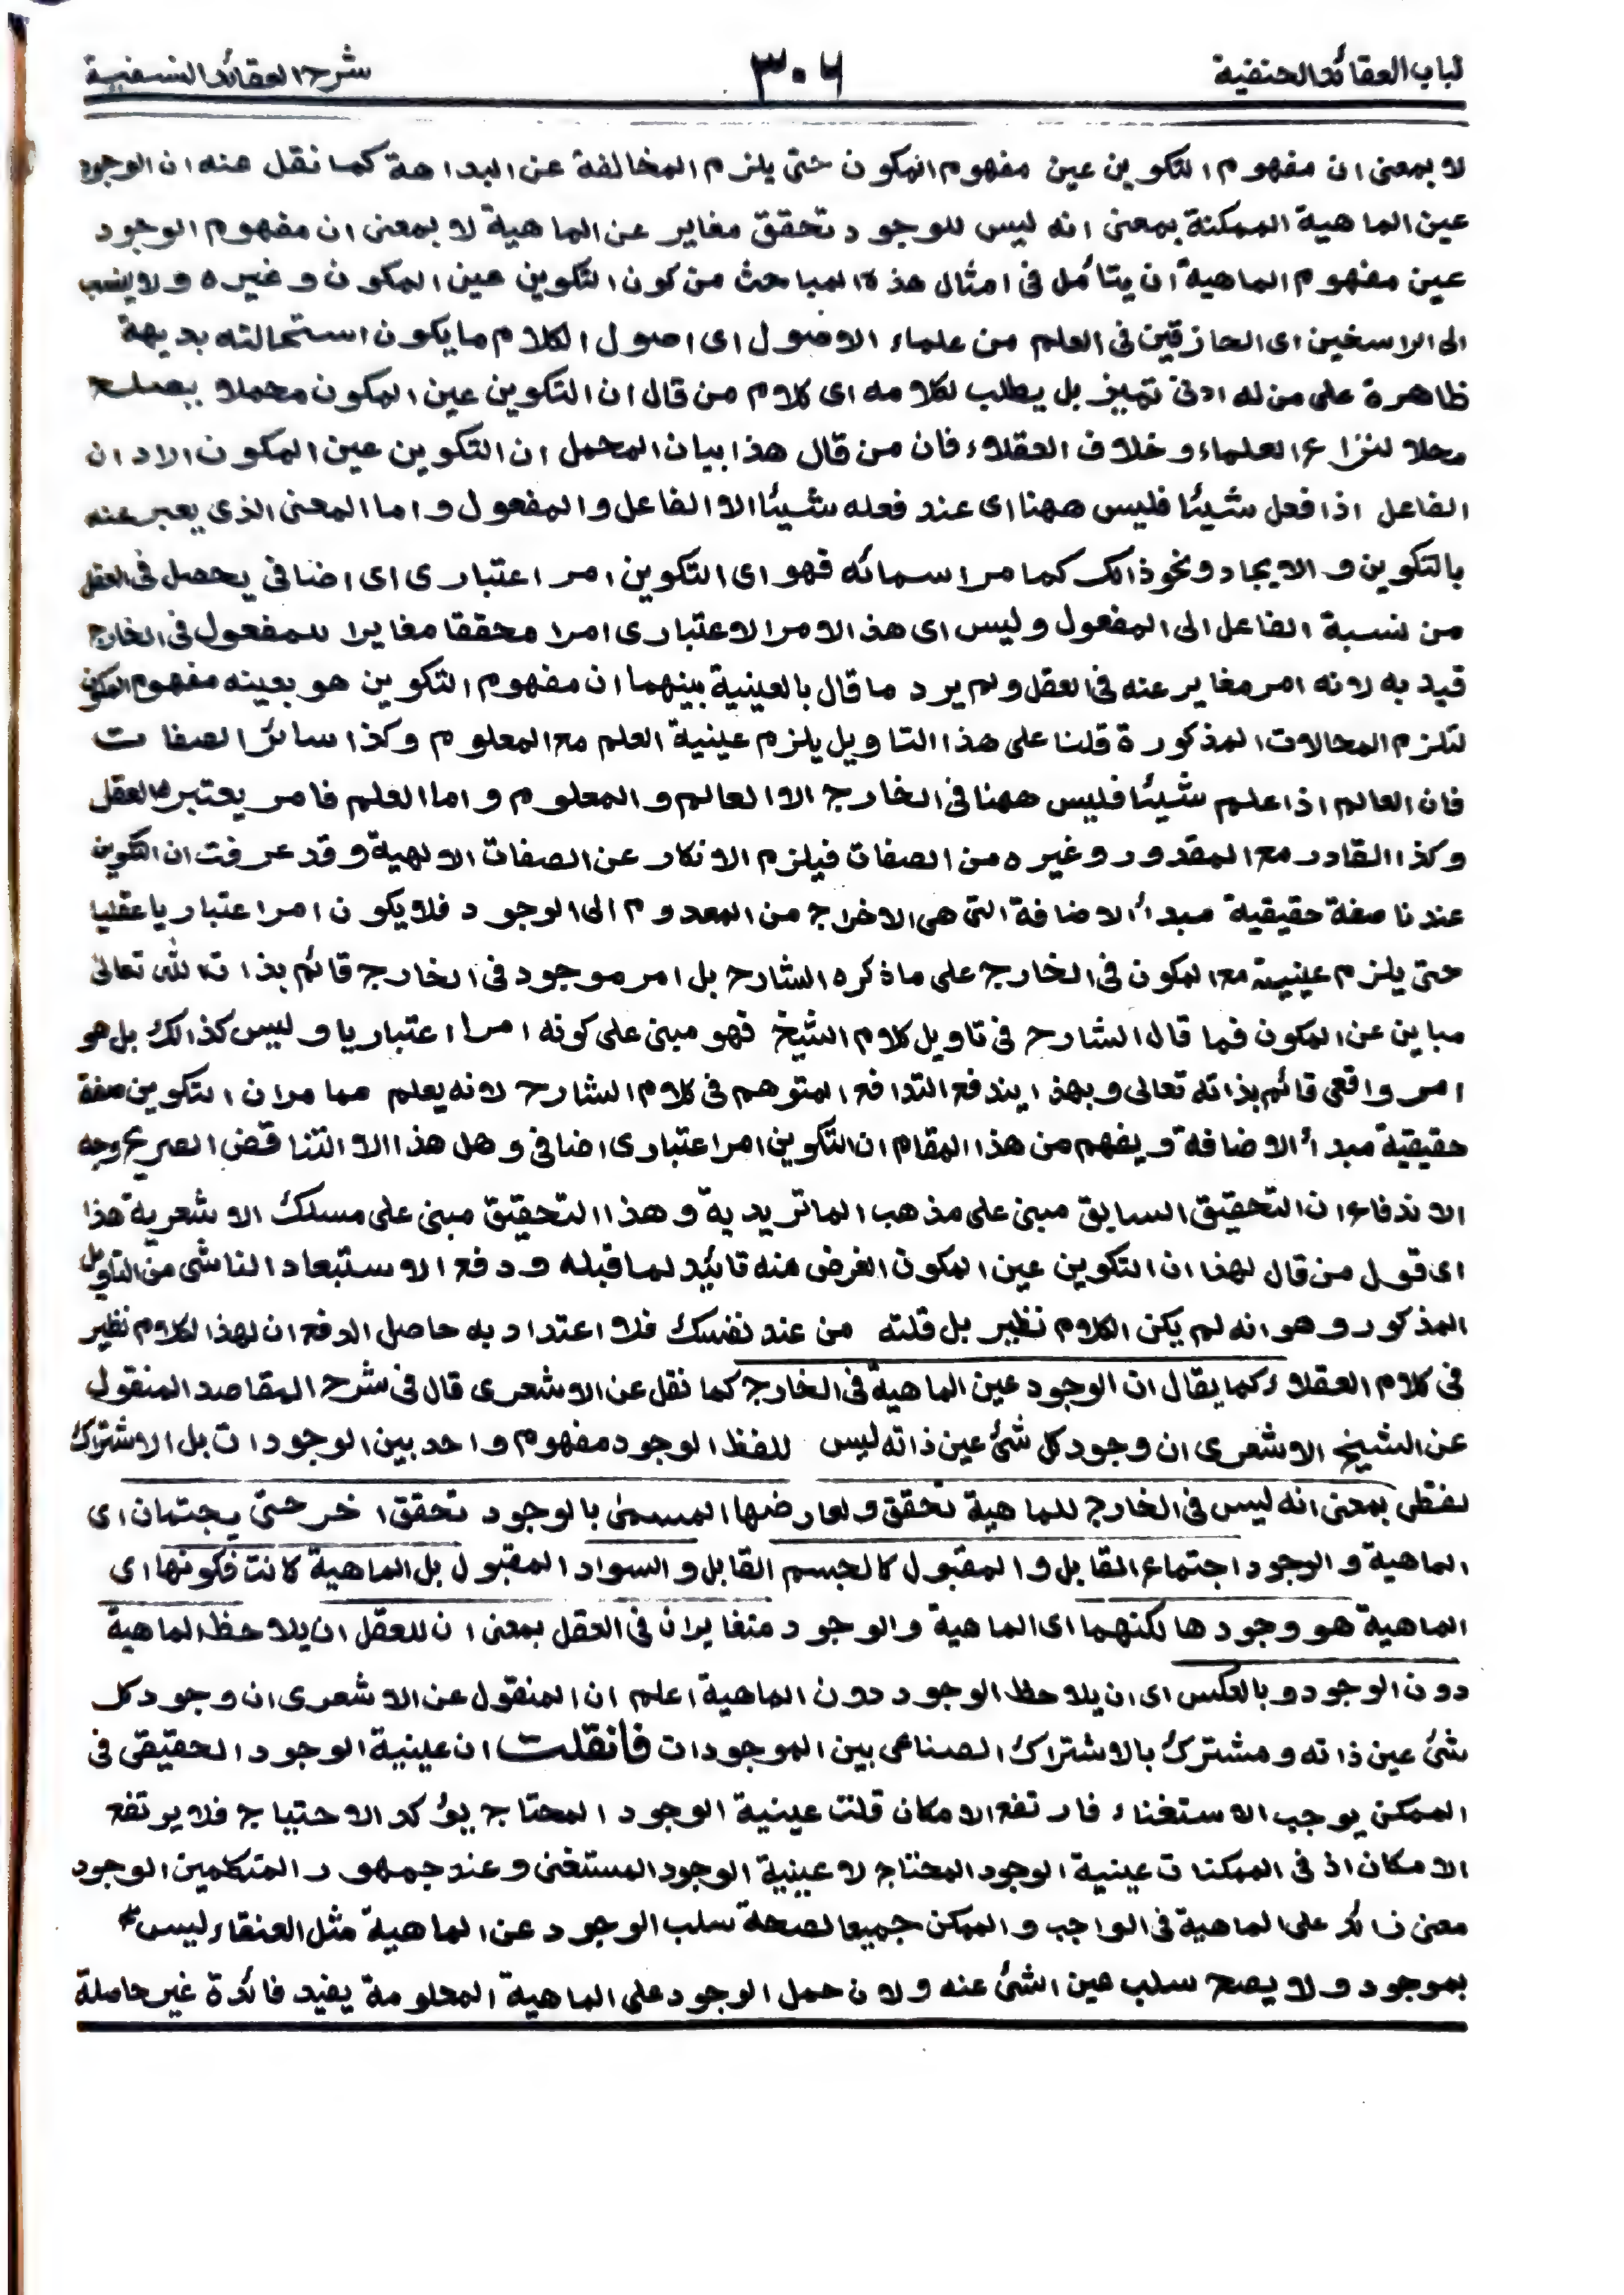 لباب العقائد الحنفية ٣٠٦ شرح العقائد النسفية
لا بمعنى ان مفهوم التكوين عين مفهوم المكون حتى يلزم المخالفة عن البداهة كما نقل عنه ان الوجود
عين الماهية الممكنة بمعنى انه ليس للوجود تحقق مغاير عن الماهية لا بمعنى ان مفهوم الوجود
عين مفهوم الماهية ان يتأمل فى امثال هذه المباحث من كون التكوين عين المكون وغيره ولا ينسب
الى الراسخين اى الحازقين فى العلم من علماء الاصول اى اصول الكلام ما يكون استحالته بديهة
ظاهرة على من له ادنى تميز بل يطلب لكلامه اى كلام من قال ان التكوين عين المكون محملا يصلح
محلا لنزاع العلماء وخلاف العقلاء فان من قال هذا بيان المحمل ان التكوين عين المكون الاد ان
الفاعل اذا فعل شيئا فليس ههنا اى عند فعله شيئا الا الفاعل والمفعول واما المعنى الذى يعبر عنه
بالتكوين والايجاد ونحو ذالك كما مر اسمائه فهو اى التكوين امر اعتبارى اى اضافى يحصل فى العقل
من نسبة الفاعل الى المفعول وليس اى هذ الامر الاعتبارى امرا محققا مغايرا للمفعول فى الخارج
قيد به لانه امر مغاير عنه فى العقل ولم يرد ما قال بالعينية بينهما ان مفهوم التكوين هو بعينه مفهوم المكون
لتلزم المحالات المذكورة قلنا على هذا التاويل يلزم عينية العلم مع المعلوم وكذا سائر الصفات
فان العالم اذا علم شيئا فليس ههنا فى الخارج الا العالم والمعلوم واما العلم فامر يعتبرها العقل
وكذا القادر مع المقدور وغيره من الصفات فيلزم الانكار عن الصفات الالهية وقد عرفت ان التكوين
عندنا صفة حقيقية مبدأ الاضافة التى هى الاخراج من المعدوم الى الوجود فلا يكون امرا عتباريا عقليا
حتى يلزم عينيته مع المكون فى الخارج على ما ذكره الشارح بل امر موجود فى الخارج قائم بذات الله تعالى
مباين عن المكون فما قال الشارح فى تاويل كلام الشيخ فهو مبنى على كونه امرا اعتباريا وليس كذالك بل هو
امر واقعى قائم بذاته تعالى وبهذ ايندفع التدافع المتوهم فى كلام الشارح لانه يعلم مما مر ان التكوين صفة
حقيقية مبدأ الاضافة ويفهم من هذا المقام ان التكوين امرا عتبارى اضافى وهل هذا الا التناقض الصريح وجه
الاندفاع ان التحقيق السابق مبنى على مذهب الماتريدية وهذا التحقيق مبنى على مسلك الاشعرية هذا
اى قول من قال لهذا ان التكوين عين المكون الغرض منه تائيد لما قبله ودفع الاستبعاد الناشى من التاويل
المذكور وهو انه لم يكن الكلام نظير بل قلته من عند نفسك فلا اعتداد به حاصل الدفع ان لهذا الكلام نظير
فى كلام العقلاء كما يقال ان الوجود عين الماهية فى الخارج كما نقل عن الاشعرى قال فى شرح المقاصد المنقول
عن الشيخ الاشعرى ان وجود كل شئ عين ذاته ليس للفظ الوجود مفهوم واحد بين الوجودات بل الاشتراك
لفظى بمعنى انه ليس فى الخارج للماهية تحقق ولعارضها المسمى بالوجود تحقق اخر حتى يجتمان اى
الماهية والوجود اجتماع القابل والمقبول كالجسم القابل والسواد المقبول بل الماهية كانت فكونها اى
الماهية هو وجودها لكنهما اى الماهية والوجود متغايران فى العقل بمعنى ان للعقل ان يلاحظ الماهية
دون الوجود وبالعكس اى ان يلاحظ الوجود دون الماهية اعلم ان المنقول عن الاشعرى ان وجود كل
شئ عين ذاته ومشترك بالاشتراك الصناعى بين الموجودات فانقلت ان عينية الوجود الحقيقى فى
الممكن يوجب الاستغناء فارتفع الامكان قلت عينية الوجود المحتاج يؤكد الاحتياج فلا يرتفع
الامكان اذ فى الممكنات عينية الوجود المحتاج لا عينية الوجود المستغنى وعند جمهور المتكلمين الوجود
معنى زائد على الماهية فى الواجب والممكن جميعا لصحة سلب الوجود عن الماهية مثل العنقاء ليس
بموجود ولا يصح سلب عين الشئ عنه ولان حمل الوجود على الماهية المعلومة يفيد فائدة غير حاصلة